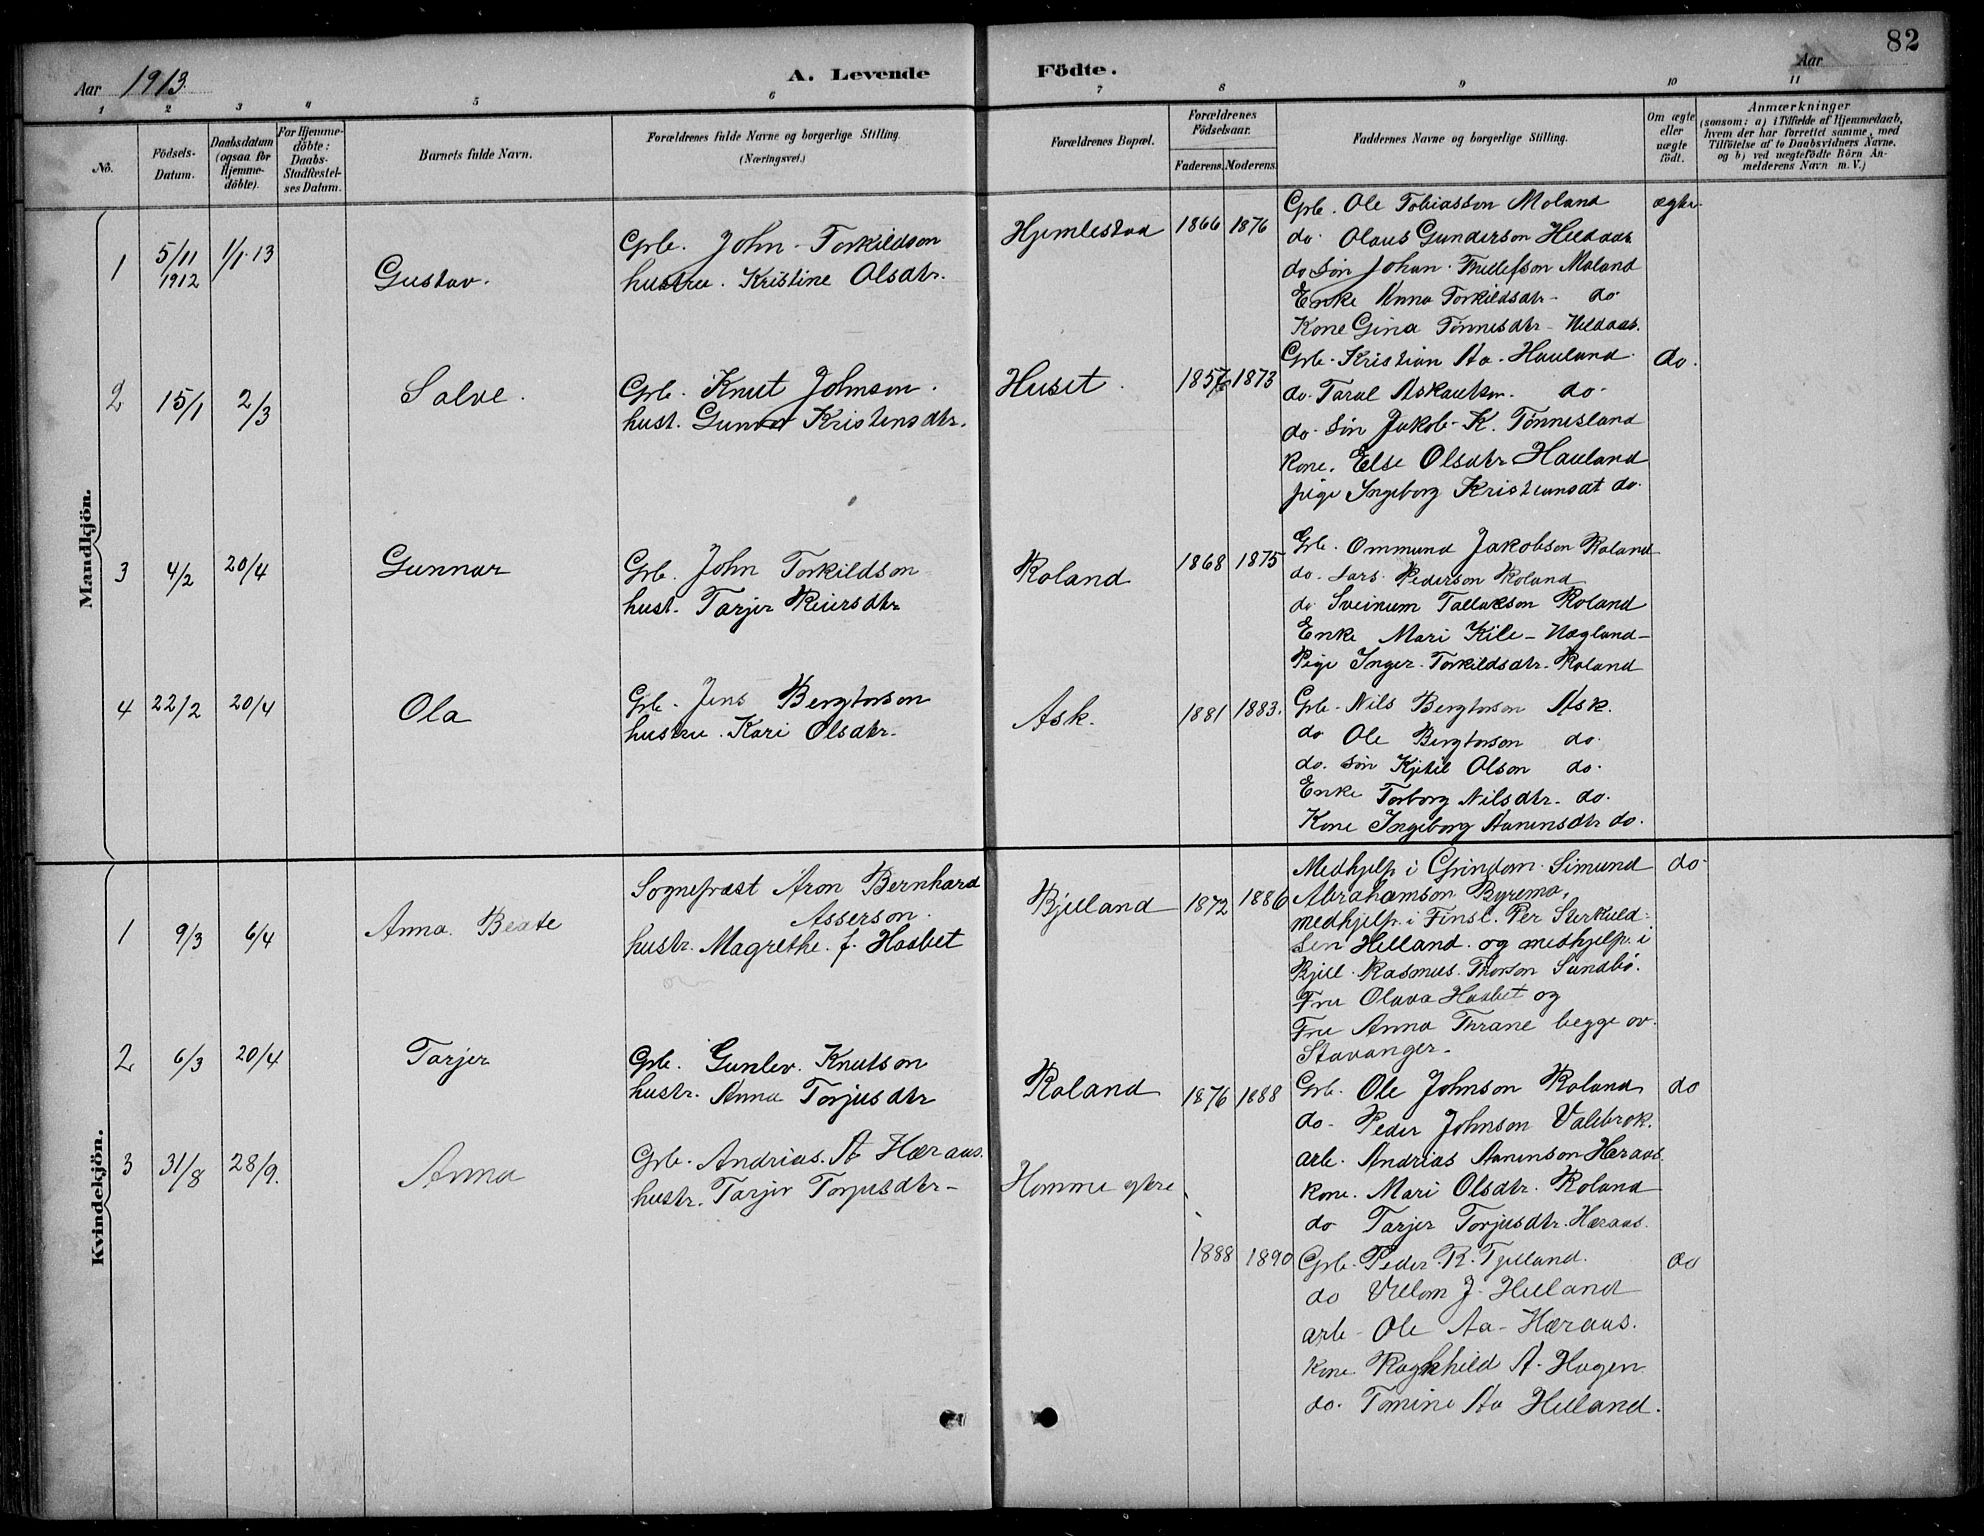 82
Aar 1913. A. Levende Födte. Aar
1 2 3 4 5 6 7 8 9 10 11
No.
Födsels-Datum.
Daabsdatum (ogsaa for Hjemme-döbte).
For Hjemme-döbte: Daabs-Stadfæstel-ses Datum.
Barnets fulde Navn.
Forældrenes fulde Navne og borgerlige Stilling.
(Næringsvei.)
Forældrenes Bopæl.
Forældrenes Födselsaar.
Faderens. Moderens.
Faddernes Navne og borgerlige Stilling.
Om ægte eller uægte födt.
Anmærkninger
(saasom: a) i Tilfælde af Hjemmedaab,
hvem der har forrettet samme, med
Tilföielse af to Daabsvidners Navne.
og b) ved uægtefödte Börn An-
melderens Navn m. V.)
Mandkjön.
1 5/11 1912 1/1 13 Gustav.
Grb. John Torkildson
hustru. Kristine Olsdtr.
Hjemlestad 1866 1876
Grb. Ole Tobiasson Moland ægte
do. Olaus Gunderson Heldaas
do søn Johan Thellefson Moland
Enke Anna Torkildsdtr - do
Kone Gina Tønnesdtr - Heldaas.
2 15/1 2/3 Salve.
Grb. Knut Johnson.
hust. Gunvor Kristensdtr.
Huset. 1857 1873
Grb. Kristian Aa. Hauland. do.
do. Taral Askautsn. do.
do. søn Jakob K. Tønnesland
Kone. Else Olsdtr Hauland
pige Ingeborg Kristiansdt do.
3 4/2 20/4 Gunnar
Grb. John Torkildson
hust. Tarjer Reiersdtr
Roland 1868 1875
Grb. Ommund Jakobson Roland
do. Lars Pederson Roland
do Sveinum Tallakson Roland
Enke Mari Kile - Hægland -
Pige Inger Torkildsdtr. Roland
4 22/2 20/4 Ola
Grb. Jens Bergtorson
hustru. Kari Olsdtr.
Ask. 1881 1883.
Grb. Nils Bergtorson Ask.
do Ole Bergtorson do.
do. søn Kjetil Olson do.
Enke Torborg Nilsdtr. do.
Kone Ingeborg Aanensdtr do.
Kvindekjön.
1 9/3 6/4 Anna Beate
Sognepræst Aron Bernhard
Asserson.
hustr. Magrethe. f. Hasbet
Bjelland 1872 1886
Medhjelp i Grindom Simund do.
Abrahamson Byremo,
medhjelp. i Finsl. Per Sterkuld-
sen Helland og medhjelp. i
Bjell. Rasmus Thorson Sundbø.
Fru Olava Hasbet og
Fru Anna Thrane begge av
Stavanger.
2 6/3 20/4 Tarjer
Grb. Gunlev Knutson
hustr. Anna Torjusdtr
Roland 1876 1888
Grb. Ole Johnson Roland do
do. Peder Johnson Valebrok.
arb. Andrias Aanenson Hæraas.
Kone. Mari Olsdtr. Roland
do Tarjer Torjusdtr. Hæraas.
3 31/8 28/9. Anna
Grb. Andrias. A Hæraas.
hustr. Tarjer Torjusdtr -
Homme øvre
1888 1890
Grb. Peder R. Tjelland. do
do Villom J. Helland
arb. Ole Aa. Hæraas.
Kone Ragnhild A. Hagen
do. Tomine Aa Helland.